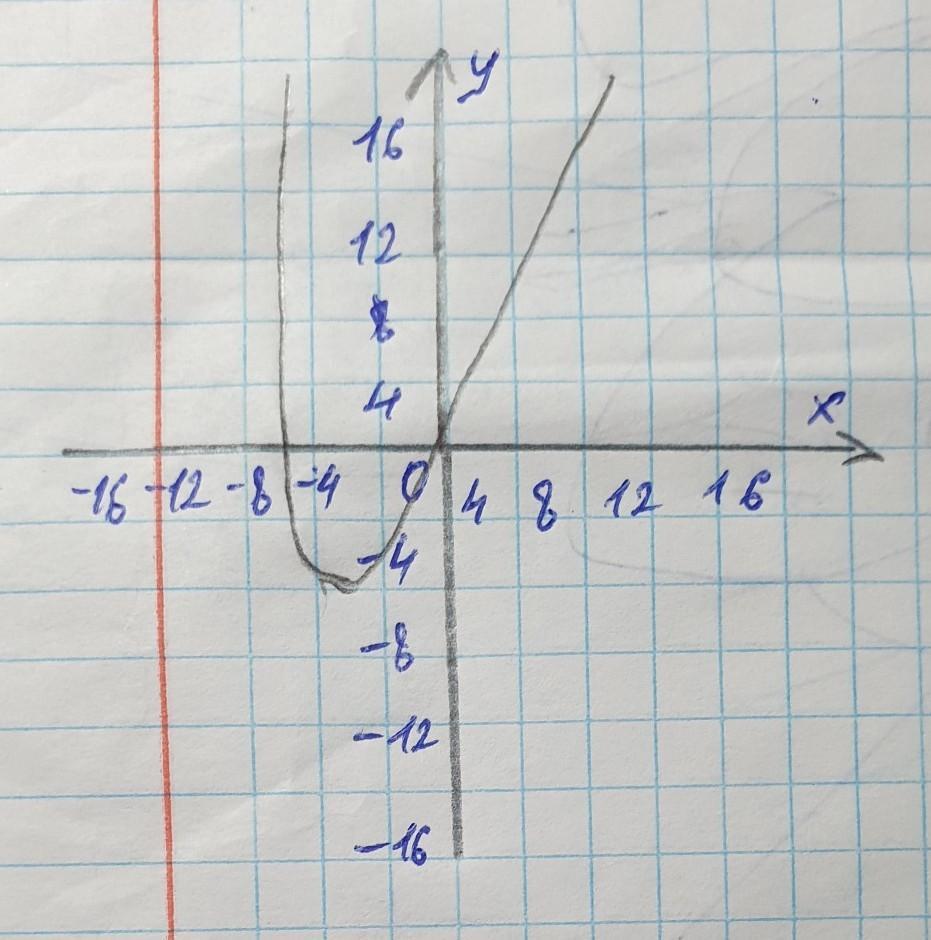 y
16
12
8
4
x
-16 -12 -8 -4 0 4 8 12 16
-4
-8
-12
-16